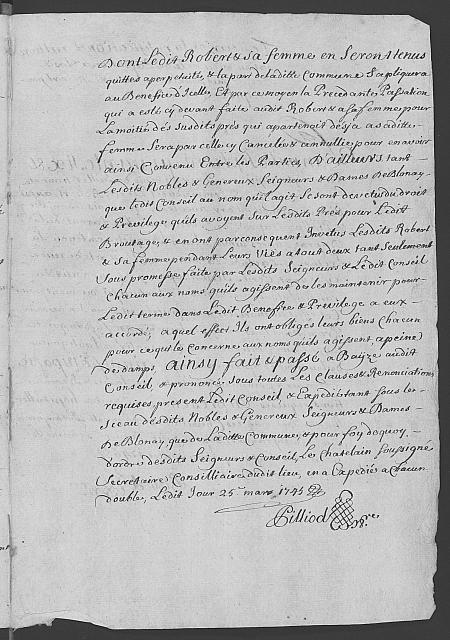 Dont Ledit Robert & sa femme en Seront tenus
quittes a perpetuité, & la part de Ladite Commune S'apliquera
au Benefice d'Icelle, Et par ce moyen la Precedante Passation
qui a esté cy devant faite audit Robert & a sa femme pour
La moitié des susdits prés qui apartenoit desja a sa ditte
femme Sera par celle cy Cancelée & annullée pour en avoir
ainsy Convenu Entre les Parties, D'ailleurs tant
Lesdits Nobles & Genereux Seigneurs & Dames De Blonay
que ledit Conseil au nom qu'il agit Se sont devetus du droit
& Privilege qu'ils avoyent Sur Lesdits Prés pour Ledit
Broutage, & en ont par consequent Invetus Lesdits Robert
& sa femme pendant Leurs Vies a tout deux tant seulement
Sous promesse faite par Lesdits Seigneurs & Ledit Conseil
chacun aux noms qu'ils agissent de les maintenir pour
Ledit terme dans Ledit Benefice & Privilege a eux
accordé, a quel effect Ils ont obligés leurs biens chacun
pour ce qui Le concerne aux noms qu'ils agissent a peine
de damps, ainsy fait & passé a audit
Conseil, & prononcé, Sous toutes Les Clauses & Renonciations
requises, present Ledit Conseil, & Expedié tant Sous les
Sceau desdits Nobles & Genereux Seigneurs & Dames
De Blonay que de Laditte Commune, & pour foy de quoy,
d'ordre desdits Seigneurs & Conseil, Le chatelain soussigné
Secretaire Consilliaire dudit lieu, en a Expedié a Chacun
double, Ledit Jour 25e mars 1745
Pilliod